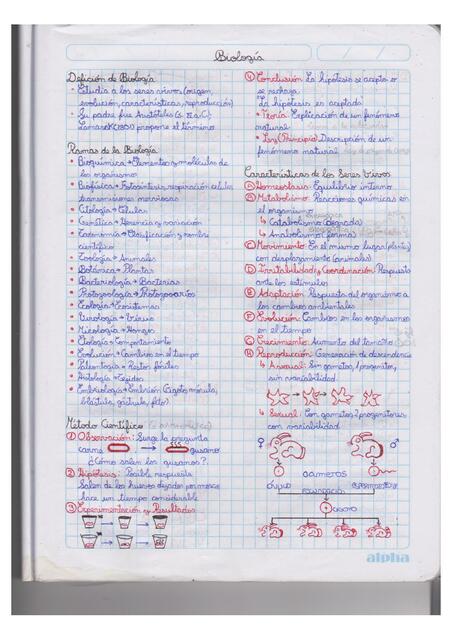 Biología
Defición de Biología
• Estudia a los seres vivos (origen,
evolución, características, reproducción)
• Su padre fue Aristóteles (s. IV a.C)
Lamarck (1802) propone el término
Ramas de la Biología
• Bioquímica → Elementos y moléculas de
los organismos
• Biofísica → Fotosíntesis, respiración celular
transmisiones nerviosas
• Citología → Células
• Genética → Herencia y variación
• Taxonomía → Clasificación y nombre
científico
• Zoología → Animales
• Botánica → Plantas
• Bacteriología → Bacterias
• Protozoología → Protozoarios
• Ecología → Ecosistemas
• Virología → Virus
• Micología → Hongos
• Etología → Comportamiento
• Evolución → Cambios en el tiempo
• Paleontología → Restos fósiles
• Histología → Tejidos
• Embriología → Embrión (Cigoto, mórula,
blástula, gástrula, feto)
Método Científico
① Observación: Surge la pregunta
carne → gusano
¿Cómo salen los gusanos?
② Hipótesis: Posible respuesta
Salen de los huevos dejados por moscas
hace un tiempo considerable
③ Experimentación y Resultados
④ Conclusión: La hipótesis se acepta o
se rechaza
La hipótesis es aceptada
• Teoría: Explicación de un fenómeno
natural
• Ley (Principio): Descripción de un
fenómeno natural
Características de los Seres Vivos
Ⓐ Homeostasis: Equilibrio interno
Ⓑ Metabolismo: Reacciones químicas en
el organismo
↳ Catabolismo (degrada)
↳ Anabolismo (forma)
Ⓒ Movimiento: En el mismo lugar (plantas)
con desplazamiento (animales)
Ⓓ Irritabilidad y Coordinación: Respuesta
ante los estímulos
Ⓔ Adaptación: Respuesta del organismo a
los cambios ambientales
Ⓕ Evolución: Cambios en los organismos
en el tiempo
Ⓖ Crecimiento: Aumento del tamaño
Ⓗ Reproducción: Generación de descendencia
↳ Asexual: Sin gametos, 1 progenitor,
sin variabilidad
↳ Sexual: Con gametos, 2 progenitores
con variabilidad
♀ ♂
GAMETOS
óvulo espermatozoide
FECUNDACIÓN
cigoto
alpha